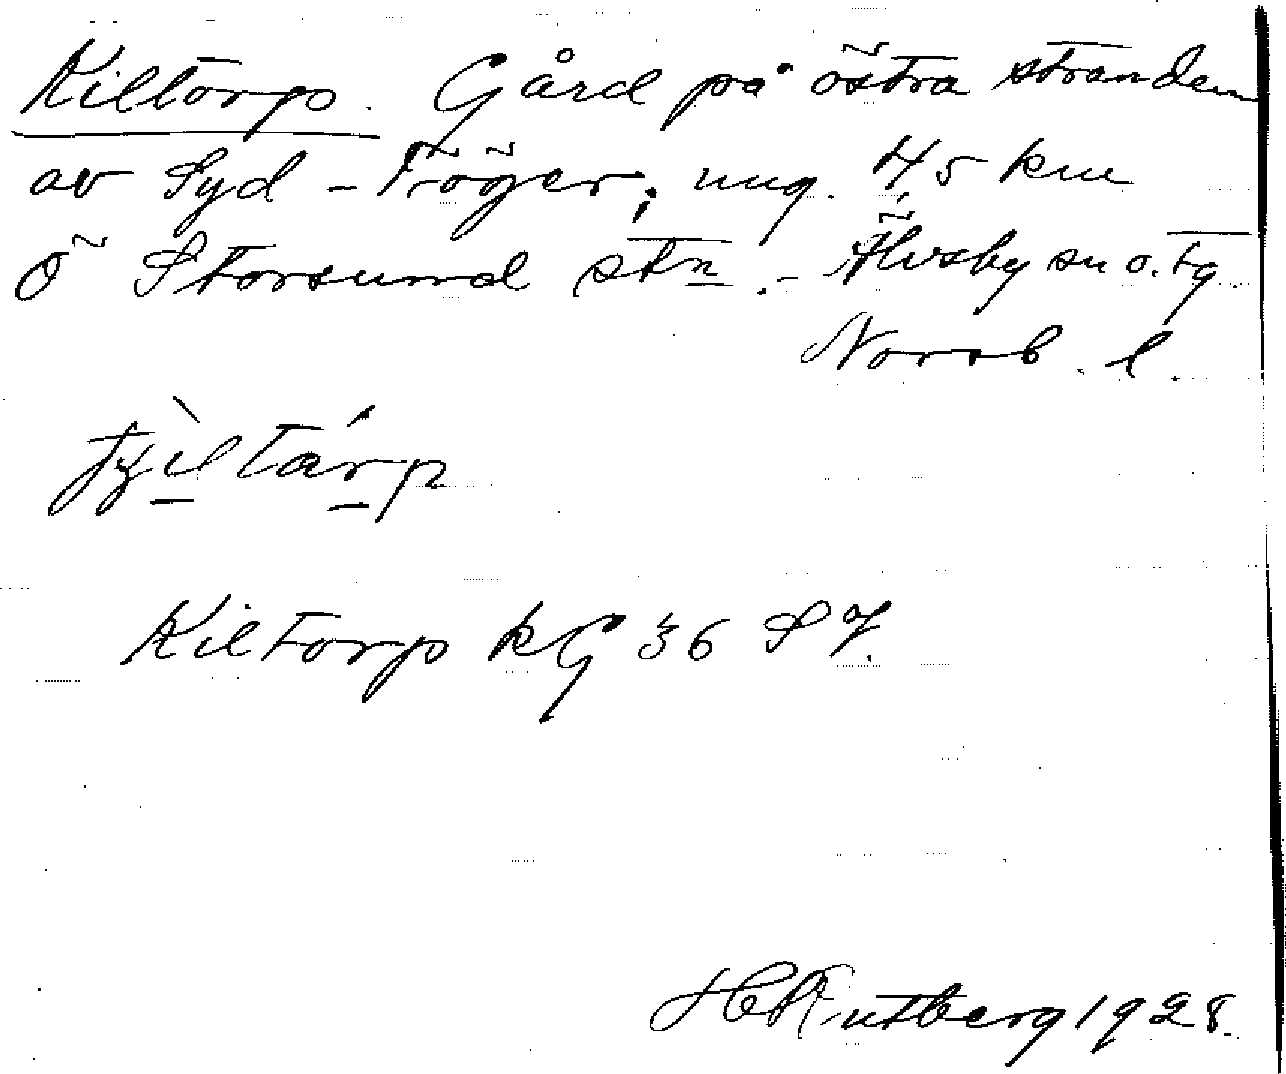 Kiltorp. Gård på östra stranden
av Syd-Tröger, ung. 4,5 km
Ö Storsund stn. - Älvsby sn o. tg
Norrb. l.
Kiltorp kG 36 SV.
H Rutberg 1928.